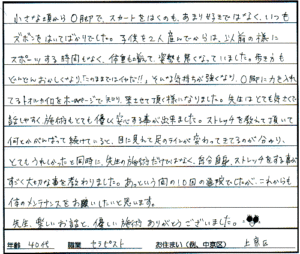 小さな頃からO脚で、スカートをはくのも、あまり好きではなく、いつも
ズボンをはいてばかりでした。子供を2人産んでからは、以前の様に
スポーツする時間もなく、体重も増えて、姿勢も悪くなっていました。歩き方も
どんどんおかしくなり、"このままではイヤだ!!"そんな気持ちが強くなり、O脚に力を入れ
てるトオルカイロをホームページで知り、来させて頂く様になりました。先生はとても気さくで
話しやすく施術もとても優しく安心する事が出来ました。ストレッチを教えて頂いて
何とかがんばって続けていると、目に見えて足のラインが変わってきてるのが分かり、
とてもうれしかったと同時に、先生の施術だけではなく、自分自身、ストレッチをする事が
すごく大切な事を教わりました。あっという間の10回の通院でしたが、これからも
体のメンテナンスをお願いしたいと思います。
先生、楽しいお話と、優しい施術ありがとうございました。
年齢 40代 職業 セラピスト お住まい(例、中京区) 上京区